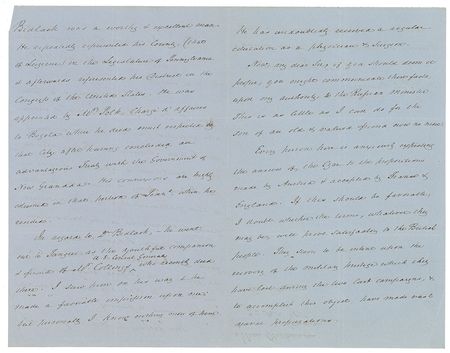 Bidlack was a worthy & excellent man.
He repeatedly represented his County, (that
of Luzerne) in the Legislature of Pennsylvania
& afterwards represented his District in the
Congress of the United States. He was
appointed by Mr. Polk, Chargé d'affaires
to Bogota where he died much respected
last City after having concluded an
advantageous Treaty with the Government of
New Granada. His connexions are highly
esteemed in that portion of Penna. where he
resided.
In regard to Dr Bidlack, he went
out to Tangier as the youthful companion
& friend of Mr. Collings, U.S. Consul General who recently died
there. I saw him on his way & he
made a favorable impression upon me;
but personally I know nothing more of him.
He has undoubtedly received a regular
education as a physician & surgeon.
May my dear Sir, if you should deem it
proper, you ought communicate these facts,
upon my authority to the Russian Minister
This is as little as I can do for the
son of an old & valued friend now no more.
Every person here is anxiously expecting
the answer of the Czar to the propositions
made by Austria & accepted by France &
England. If this should be favorable,
I doubt whether the terms, whatever they
may be, will prove satisfactory to the British
people. They seem to be intent upon the
recovery of the military prestige which they
have lost during the two last campaigns, &
to accomplish this object, have made vast
naval preparations.